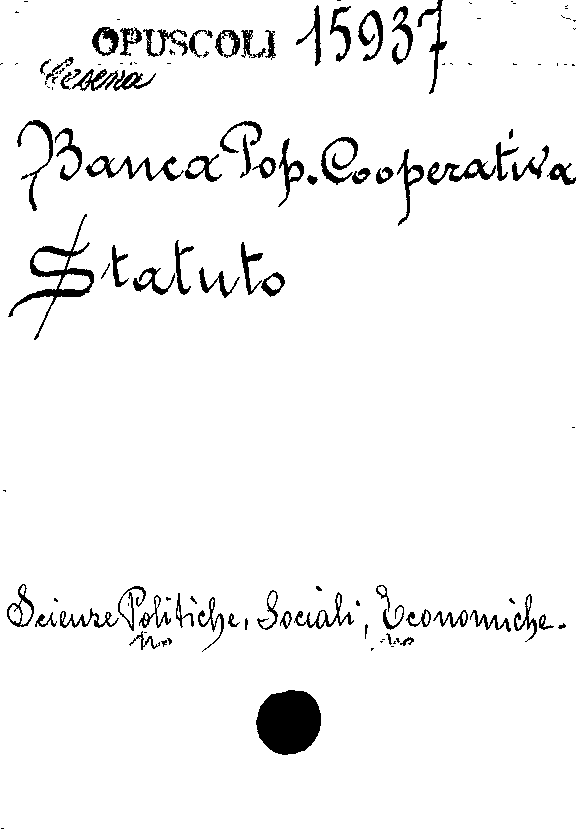 OPUSCOLI 15937
Cesena
Banca Pop. Cooperativa
Statuto
Scienze Politiche, Sociali, Economiche.